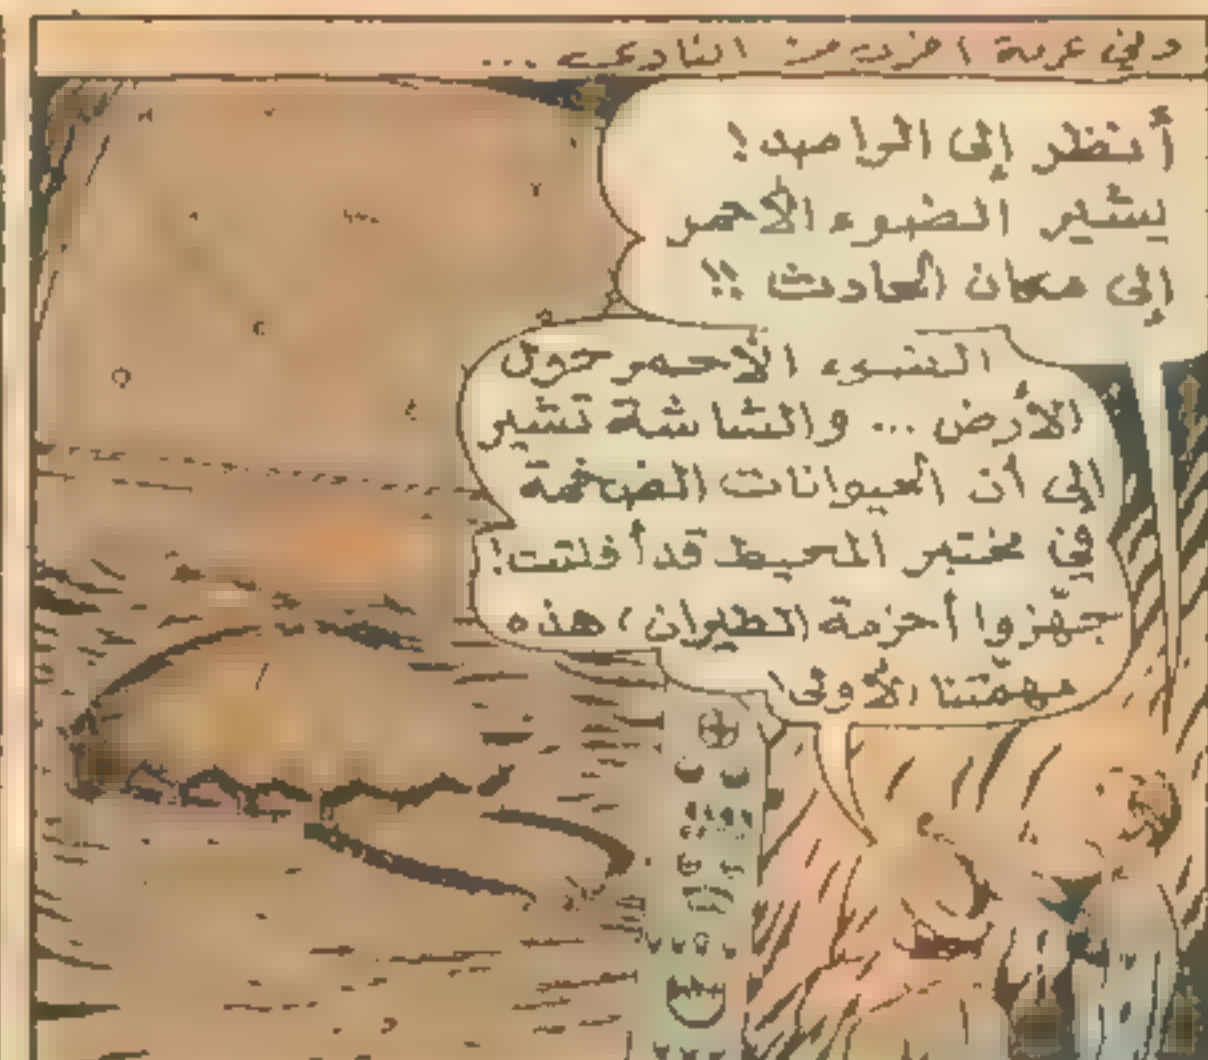 وفي غرفة أخرى من النادي ...
أنظر إلى الراصد!
يشير الضوء الأحمر
إلى مكان الحادث !!
الضوء الأحمر حول
الأرض ... والشاشة تشير
إلى أن الحيوانات الضخمة
في مختبر المحيط قد أفلتت!
جهّزوا أحزمة الطيران، هذه
مهمّتنا الأولى!